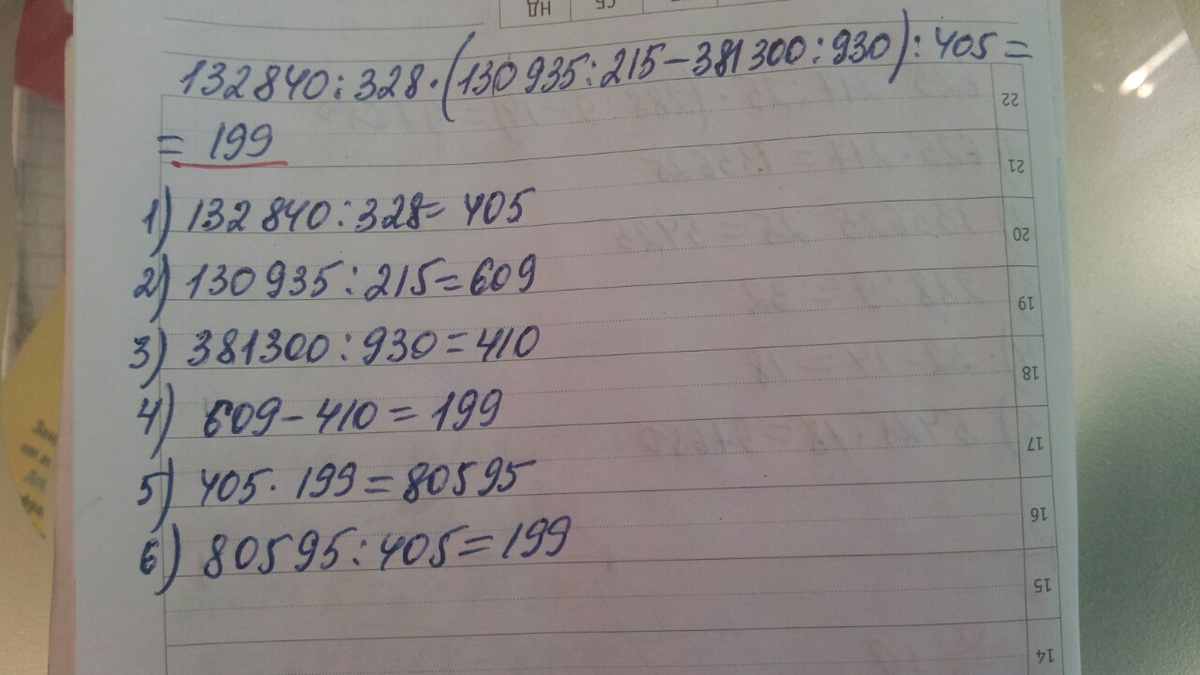 132840:328·(130935:215-381300:930):405=
= 199
1) 132 840:328= 405
2) 130935:215=609
3) 381300:930=410
4) 609-410=199
5) 405·199=80595
6) 80595:405=199
22
21
20
19
18
17
16
15
14
НД
СБ